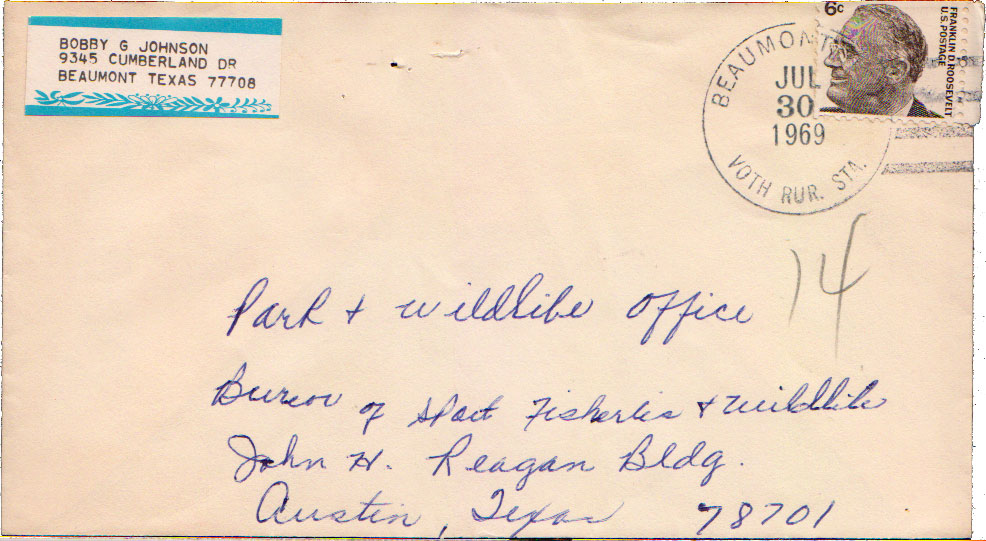 BOBBY G JOHNSON
9345 CUMBERLAND DR
BEAUMONT TEXAS 77708
6c
FRANKLIN D. ROOSEVELT
U.S. POSTAGE
BEAUMONT
JUL
30
1969
VOTH RUR. STA.
14
Park + Wildlife Office
Bureau of Sport Fisheries + Wildlife
John H. Reagan Bldg.
Austin, Texas 78701